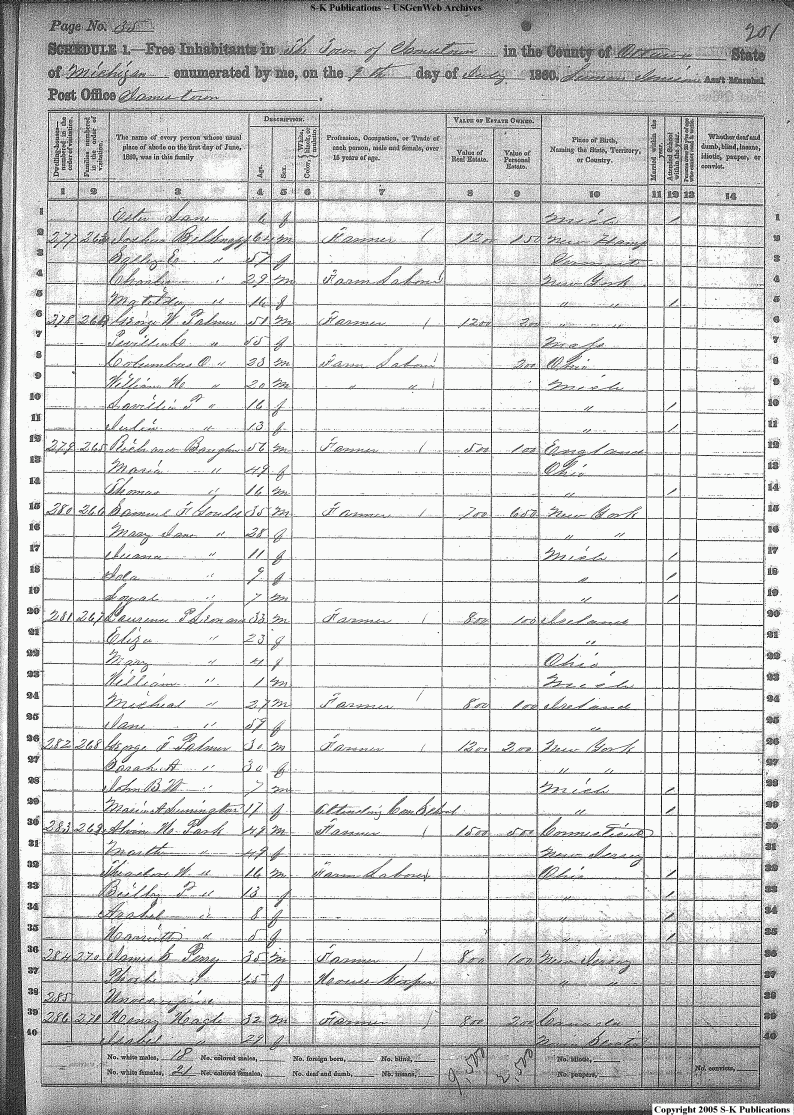 S-K Publications – USGenWeb Archives
Page No. 35
201
SCHEDULE 1.—Free Inhabitants in The Town of Jamestown in the County of Ottawa State
of Michigan enumerated by me, on the 9th day of July 1860. Ass't Marshal
Post Office Jamestown
Dwelling-houses—numbered in the order of visitation.
Families numbered in the order of visitation.
The name of every person whose usual place of abode on the first day of June, 1860, was in this family
DESCRIPTION.
Age.
Sex.
Color, White, black, or mulatto.
Profession, Occupation, or Trade of each person, male and female, over 15 years of age.
VALUE OF ESTATE OWNED.
Value of Real Estate.
Value of Personal Estate.
Place of Birth, Naming the State, Territory, or Country.
Married within the year.
Attended School within the year.
Whether deaf and dumb, blind, insane, idiotic, pauper, or convict.
1 2 3 4 5 6 7 8 9 10 11 12 13 14
1 Lane 6 f Mich / 1
2 277 263 Joshua 64 m Farmer / 1200 150 New Hamp 2
3 " 57 f Vermont 3
4 Charles " 29 m Farm Labour New York 4
5 Matilda " 16 f " " / 5
6 278 264 George W Palmer 51 m Farmer / 1200 200 " " 6
7 " 55 f Mass 7
8 Columbus O " 23 m Farm Labour 200 Ohio 8
9 William H " 20 m " " Mich 9
10 " 16 f " / 10
11 Julia " 13 f " / 11
12 279 265 Richard 56 m Farmer / 500 100 England 12
13 Maria " 49 f Ohio 13
14 Thomas " 16 m " / 14
15 280 266 Samuel F Gould 35 m Farmer / 700 650 New York 15
16 Mary Jane " 28 f " " 16
17 " 11 f Mich / 17
18 " 9 f " / 18
19 Loyal " 7 m " / 19
20 281 267 Laurence 33 m Farmer / 800 100 Ireland 20
21 Eliza " 23 f " 21
22 Mary " 4 f Ohio 22
23 William " 1 m Mich 23
24 Micheal " 27 m Farmer / 800 100 Ireland 24
25 Jane " 59 f " 25
26 282 268 George F Palmer 30 m Farmer / 1200 200 New York 26
27 Sarah A " 30 f " " 27
28 John B W " 7 m Mich / 28
29 17 f Attending School " / 29
30 283 269 H Park 49 m Farmer / 1500 500 Connecticut 30
31 Martha " 49 f New Jersey 31
32 Theadore W " 16 m Farm Labour Ohio / 32
33 F " 13 f " / 33
34 " 8 f " / 34
35 " 5 f " / 35
36 284 270 James Perry 35 m Farmer / 800 100 New Jersey 36
37 Phoebe " f House Keeper " " 37
38 285 Unoccupied 38
39 286 271 Henry Hagle 32 m Farmer / 800 200 Canada 39
40 Isabel " 29 f 40
No. white males, 18 No. colored males, No. foreign born, No. blind, No. idiotic,
No. white females, 21 No. colored females, No. deaf and dumb, No. insane, No. paupers, No. convicts,
Copyright 2005 S-K Publications